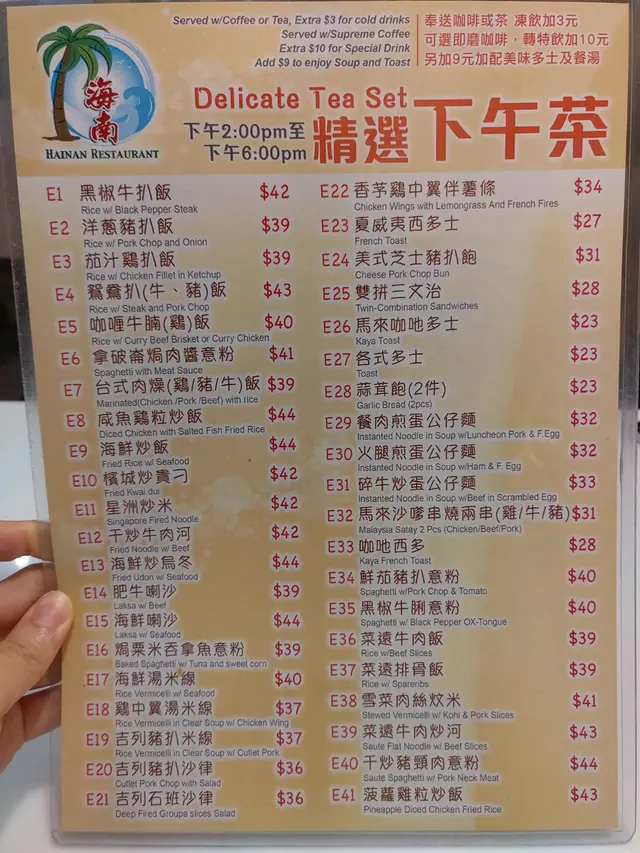 Served w/Coffee or Tea, Extra $3 for cold drinks
Served w/Supreme Coffee
Extra $10 for Special Drink
Add $9 to enjoy Soup and Toast
奉送咖啡或茶 凍飲加3元
可選即磨咖啡，轉特飲加10元
另加9元加配美味多士及餐湯
海南
HAINAN RESTAURANT
Delicate Tea Set
下午2:00pm至
下午6:00pm
精選下午茶
E1 黑椒牛扒飯 $42
Rice w/ Black Pepper Steak
E2 洋蔥豬扒飯 $39
Rice w/ Pork Chop and Onion
E3 茄汁鷄扒飯 $39
Rice w/ Chicken Fillet in Ketchup
E4 鴛鴦扒(牛、豬)飯 $43
Rice w/ Steak and Pork Chop
E5 咖喱牛腩(鷄)飯 $40
Rice w/ Curry Beef Brisket or Curry Chicken
E6 拿破崙焗肉醬意粉 $41
Spaghetti with Meat Sauce
E7 台式肉燥(鷄/豬/牛)飯 $39
Marinated(Chicken /Pork /Beef) with rice
E8 咸魚鷄粒炒飯 $44
Diced Chicken with Salted Fish Fried Rice
E9 海鮮炒飯 $44
Fried Rice w/ Seafood
E10 檳城炒貴刁 $42
Fried Kwai dui
E11 星洲炒米 $42
Singapore Fired Noodle
E12 干炒牛肉河 $42
Fried Noodle w/ Beef
E13 海鮮炒烏冬 $44
Fried Udon w/ Seafood
E14 肥牛喇沙 $39
Laksa w/ Beef
E15 海鮮喇沙 $44
Laksa w/ Seafood
E16 焗栗米吞拿魚意粉 $39
Baked Spaghetti w/ Tuna and sweet corn
E17 海鮮湯米線 $40
Rice Vermicelli w/ Seafood
E18 鷄中翼湯米線 $37
Rice Vermicelli in Clear Soup w/ Chicken Wing
E19 吉列豬扒米線 $37
Rice Vermicelli in Clear Soup w/ Cutlet Pork
E20 吉列豬扒沙律 $36
Cutlet Pork Chop with Salad
E21 吉列石班沙律 $36
Deep Fired Groupa slices Salad
E22 香茅鷄中翼伴薯條 $34
Chicken Wings with Lemongrass And French Fires
E23 夏威夷西多士 $27
French Toast
E24 美式芝士豬扒飽 $31
Cheese Pork Chop Bun
E25 雙拼三文治 $28
Twin-Combination Sandwiches
E26 馬來咖吔多士 $23
Kaya Toast
E27 各式多士 $23
Toast
E28 蒜茸飽(2件) $23
Garlic Bread (2pcs)
E29 餐肉煎蛋公仔麵 $32
Instanted Noodle in Soup w/Luncheon Pork & F.Egg
E30 火腿煎蛋公仔麵 $32
Instanted Noodle in Soup w/Ham & F. Egg
E31 碎牛炒蛋公仔麵 $33
Instanted Noodle in Soup w/Beef in Scrambled Egg
E32 馬來沙嗲串燒兩串(雞/牛/豬) $31
Malaysia Satay 2 Pcs (Chicken/Beef/Pork)
E33 咖吔西多 $28
Kaya French Toast
E34 鮮茄豬扒意粉 $40
Spaghetti w/Pork Chop & Tomato
E35 黑椒牛脷意粉 $40
Spaghetti w/ Black Pepper OX-Tongue
E36 菜遠牛肉飯 $39
Rice w/Beef Slices
E37 菜遠排骨飯 $39
Rice w/ Spareribs
E38 雪菜肉絲炆米 $41
Stewed Vermicelli w/ Kohl & Pork Slices
E39 菜遠牛肉炒河 $43
Saute Flat Noodle w/ Beef Slices
E40 干炒豬頸肉意粉 $44
Saute Spaghetti w/ Pork Neck Meat
E41 菠蘿雞粒炒飯 $43
Pineapple Diced Chicken Fried Rice